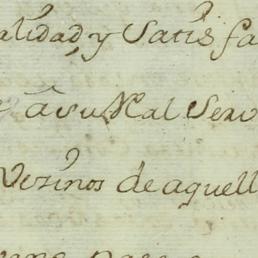 alidad, y Satisfa
â su Rl al Serv
Vezinos de aquell